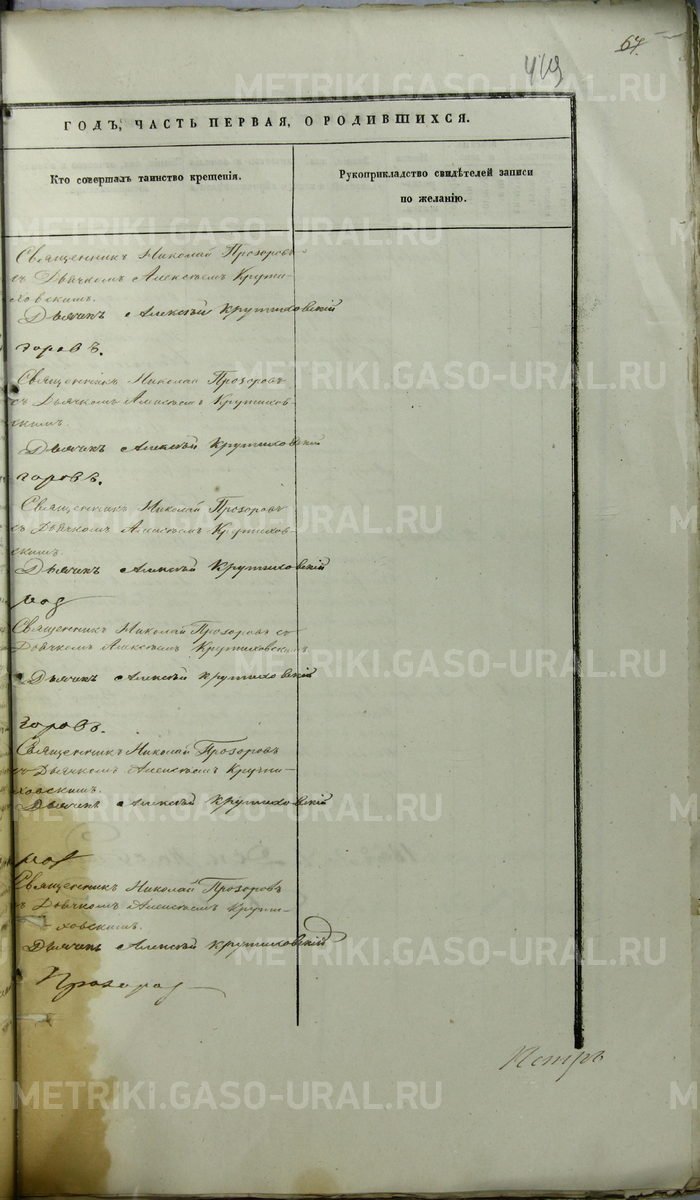 64.
419
ГОДЪ, ЧАСТЬ ПЕРВАЯ, О РОДИВШИХСЯ.
Кто совершалъ таинство крещенія.
Рукоприкладство свидѣтелей записи
по желанію.
Священникъ Николай Прозоровъ
съ Дьячкомъ Алексѣемъ Крути-
ховскимъ.
Дьячекъ Алексѣй Крутиховскій
горовъ.
Священникъ Николай Прозоровъ
съ Дьячкомъ Алексѣемъ Крутихов-
скимъ.
Дьячекъ Алексѣй Крутиховскій
горовъ.
Священникъ Николай Прозоровъ
съ Дьячкомъ Алексѣемъ Крутихов-
скимъ.
Дьячекъ Алексѣй Крутиховскій
Священникъ Николай Прозоровъ съ
Дьячкомъ Алексѣемъ Крутиховскимъ
Дьячекъ Алексѣй Крутиховскій
горовъ.
Священникъ Николай Прозоровъ
съ Дьячкомъ Алексѣемъ Крути-
ховскимъ.
Дьячекъ Алексѣй Крутиховскій
Священникъ Николай Прозоровъ
съ Дьячкомъ Алексѣемъ Крути-
ховскимъ.
Дьячекъ Алексѣй Крутиховскій
Петръ
METRIKI.GASO-URAL.RU
METRIKI.GASO-URAL.RU
METRIKI.GASO-URAL.RU
METRIKI.GASO-URAL.RU
METRIKI.GASO-URAL.RU
METRIKI.GASO-URAL.RU
METRIKI.GASO-URAL.RU
METRIKI.GASO-URAL.RU